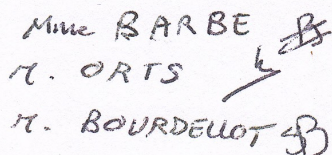 Mme BARBE
M. ORTS
M. BOURDELLOT